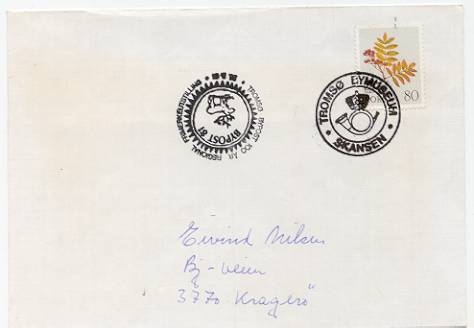 NOREG 80
TROMSØ BYMUSEUM
SKANSEN
TROMSØ BYPOST 100 ÅR REGIONAL FRIMERKEUTSTILLING
BYPOST 81
Eivind Nilsen
Bj-veien
3770 Kragerø